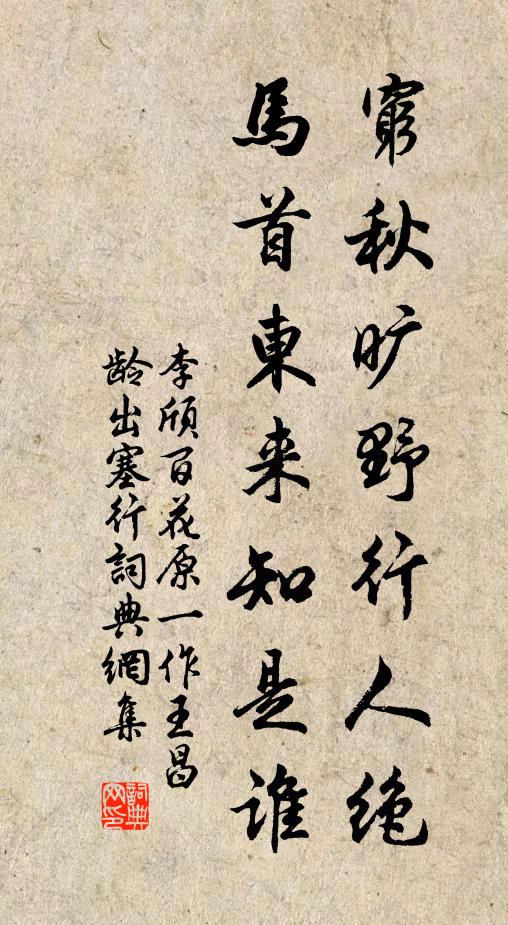 窮秋旷野行人绝
馬首東来知是谁
李颀百花原一作王昌
龄出塞行詞典網集
詞典网印